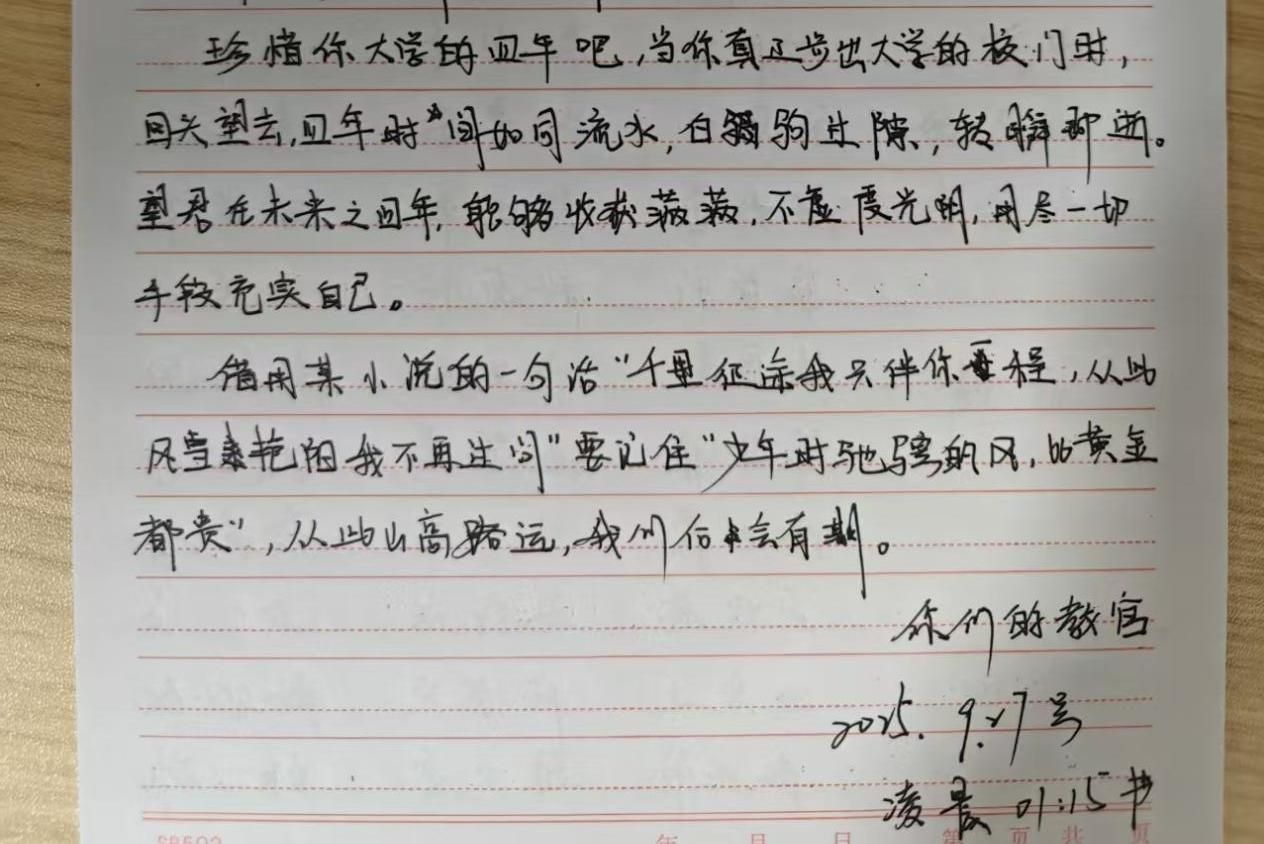 珍惜你大学的四年吧,当你真正步出大学的校门时,
回头望去,四年时间如同流水,白驹过隙,转瞬即逝。
望君在未来之四年,能够收获满满,不虚度光明,用尽一切
手段充实自己。
借用某小说的一句话“千里征途我只伴你一程,从此
风雪艳阳我不再过问”要记住“少年时驰骋的风,比黄金
都贵”,从此山高路远,我们后会有期。
你们的教官
2025.9.27号
凌晨 01:15书
年 月 日 第 页 共 页